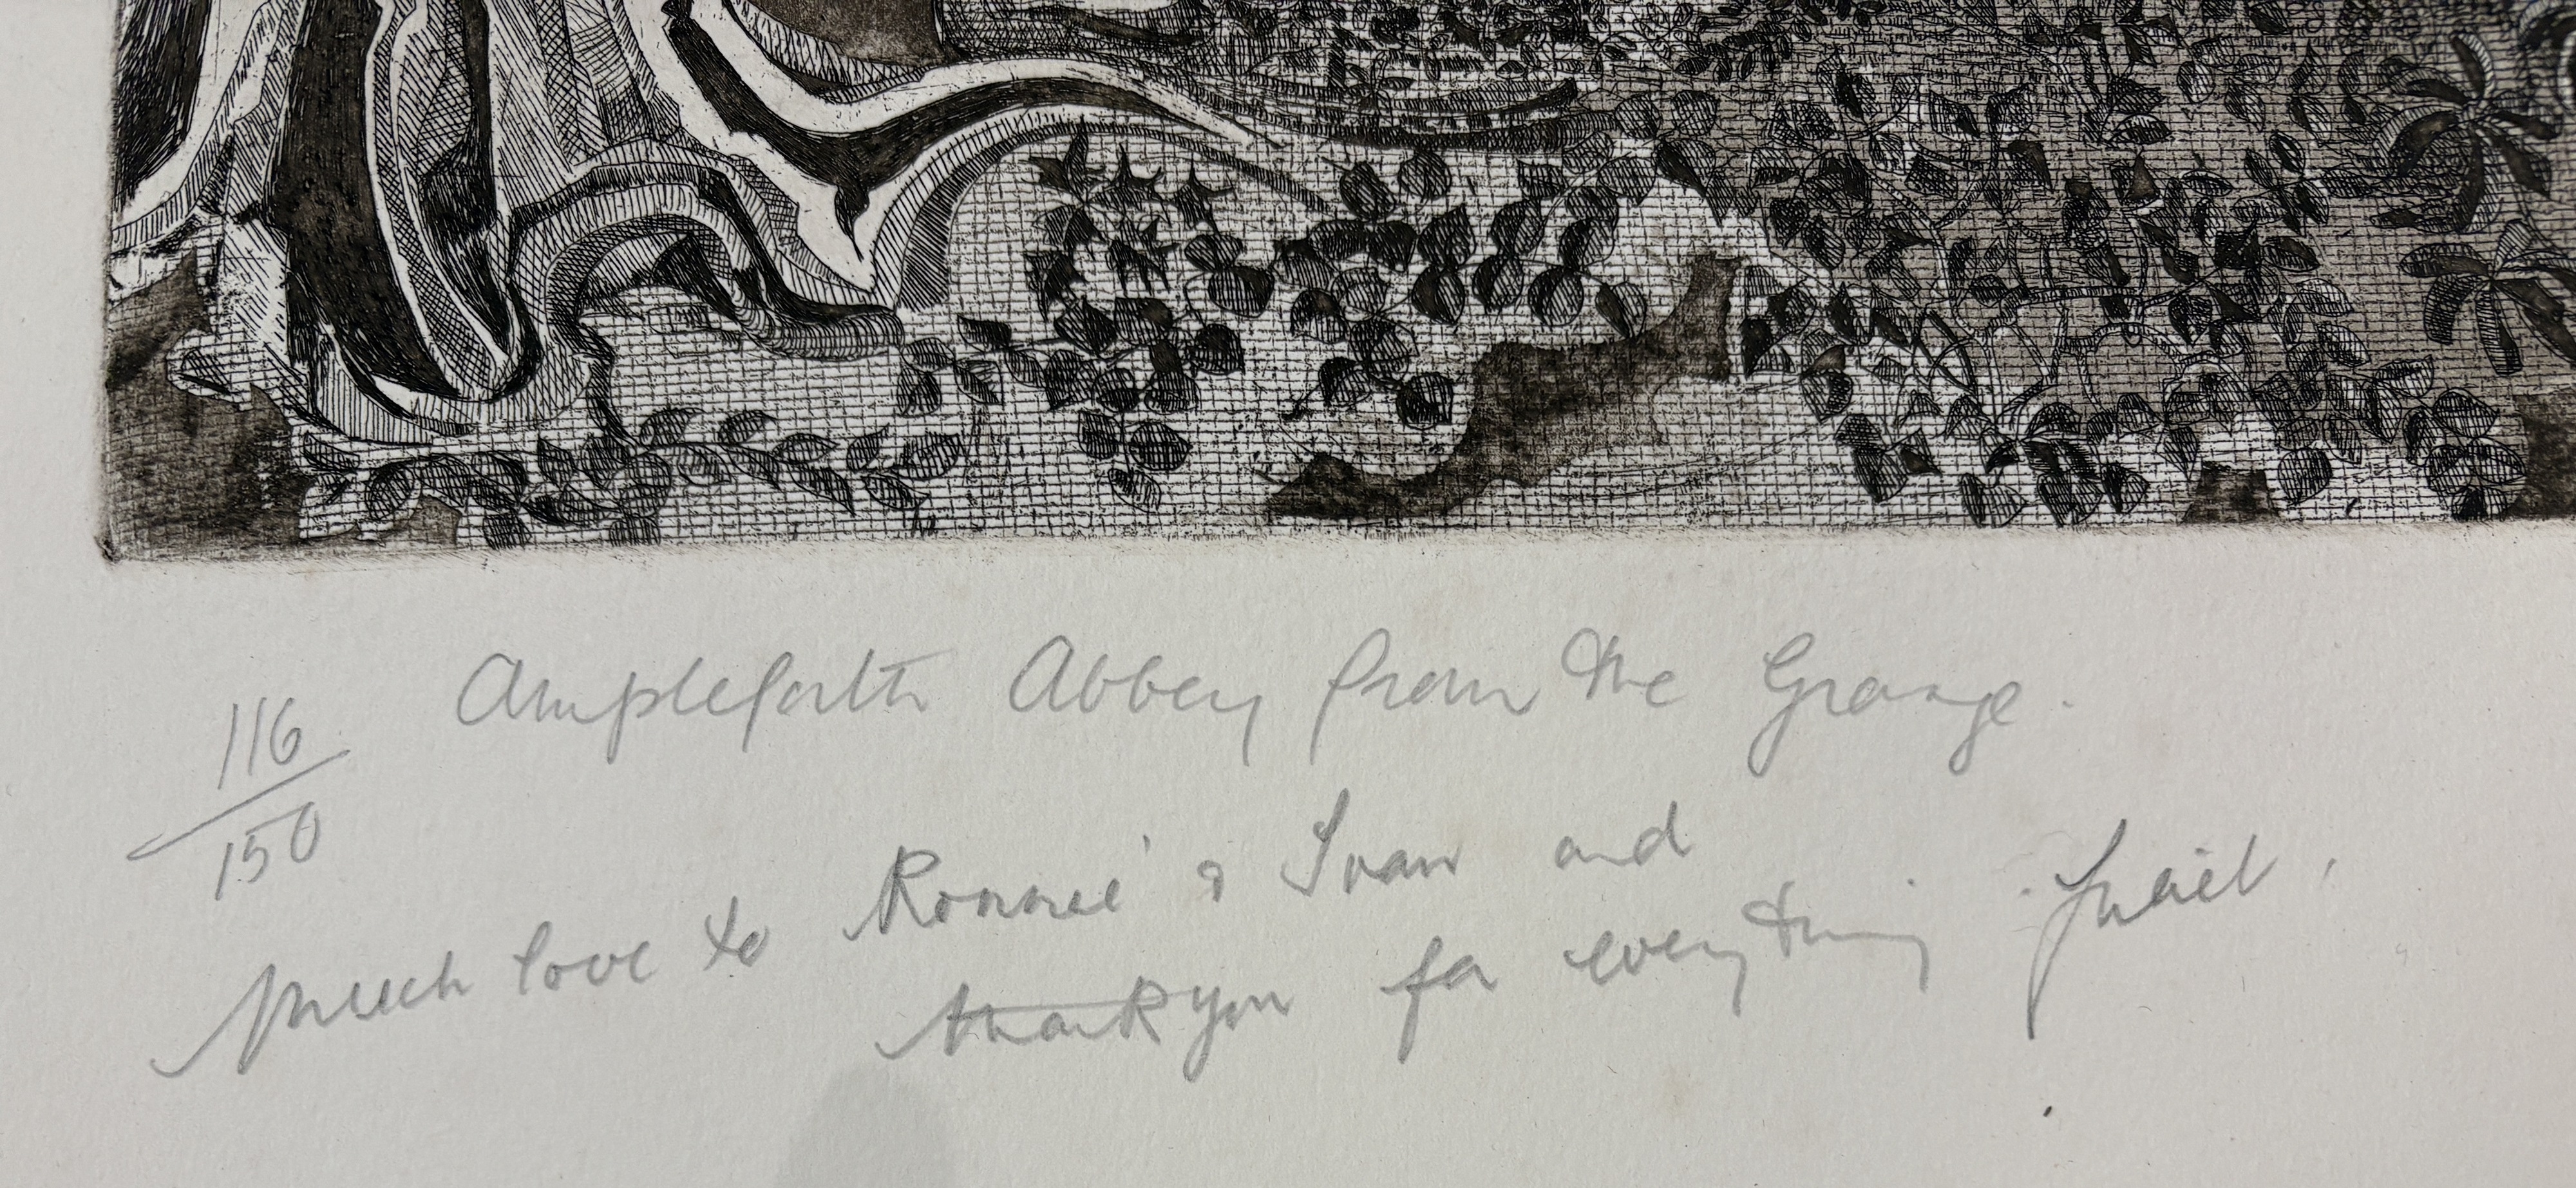 116/150
Ampleforth Abbey from the Grange.
Much love to Ronnie & Ivan and
thank you for everything